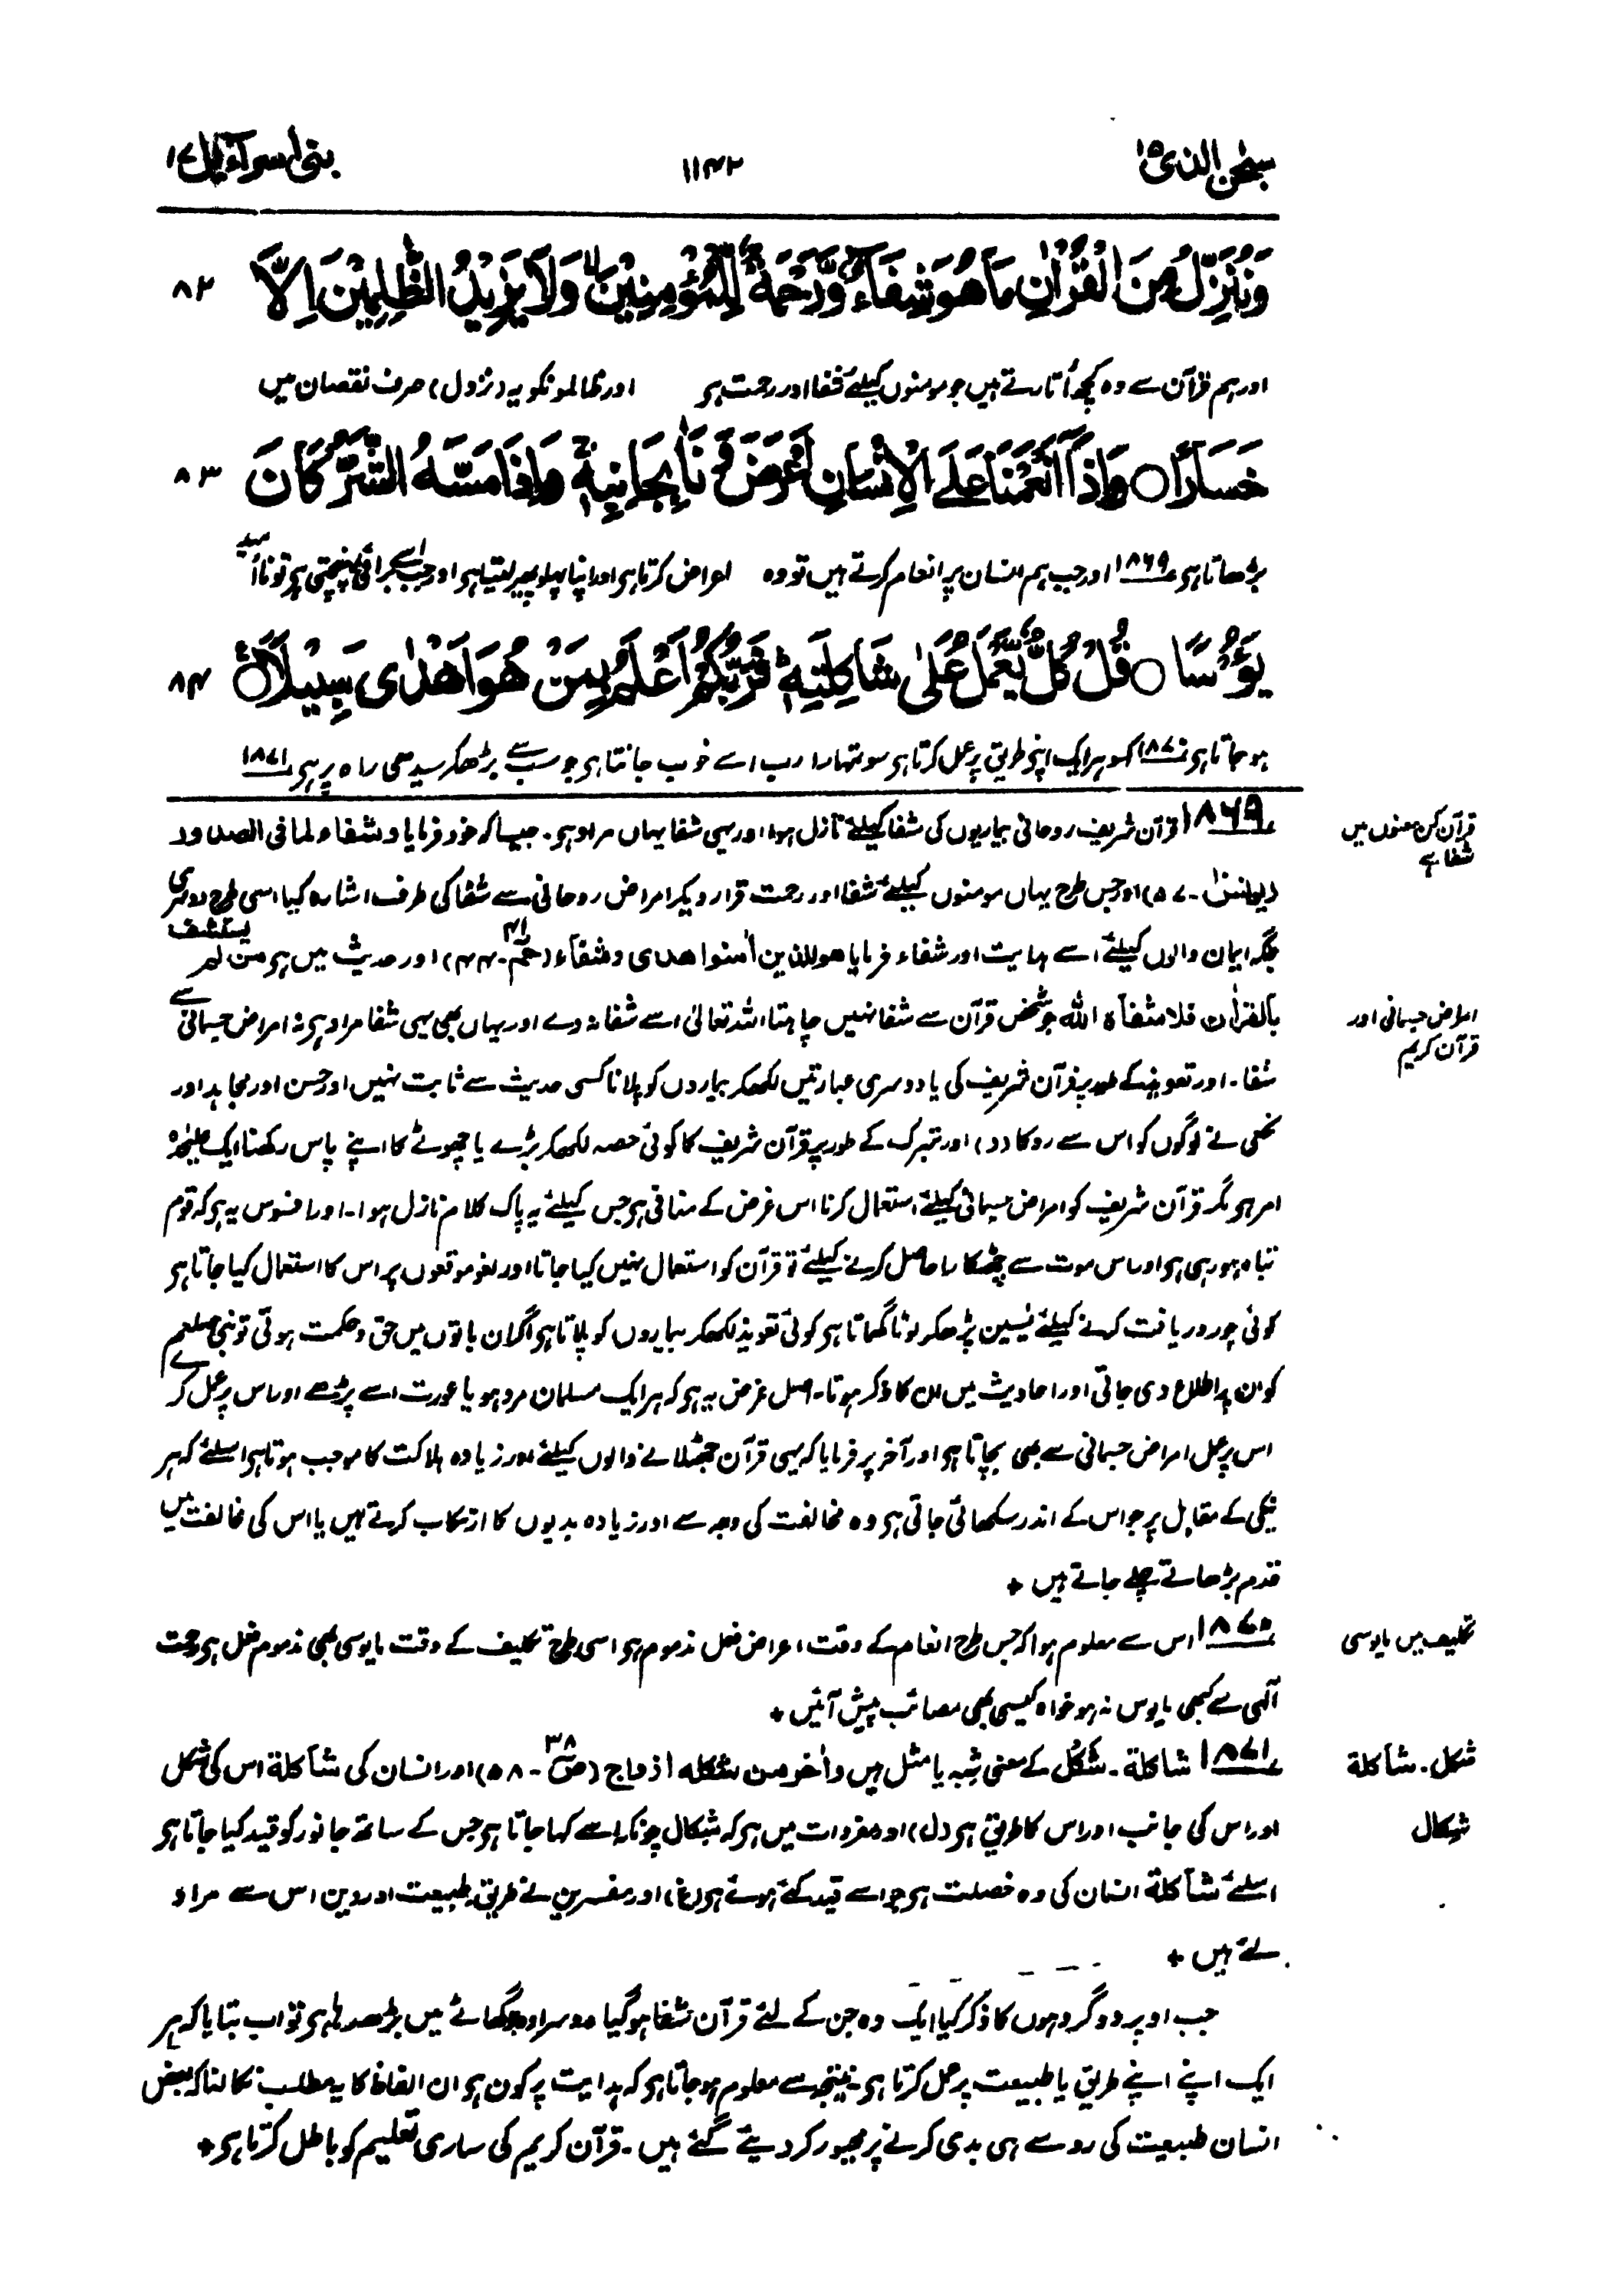 سبحٰن الذی ١٥
١١٤٢
بنی اسرآءیل ١٧
وَنُنَزِّلُ مِنَ الْقُرْاٰنِ مَا هُوَ شِفَآءٌ وَّرَحْمَةٌ لِّلْمُؤْمِنِیْنَ ۙ وَلَا یَزِیْدُ الظّٰلِمِیْنَ اِلَّا ٨٢
اور ہم قرآن سے وہ کچھ اُتارتے ہیں جو مومنوں کیلئے شفا اور رحمت ہو اور ظالمونکو یہ (نزول) صرف نقصان میں
خَسَارًا ○ وَاِذَآ اَنْعَمْنَا عَلَی الْاِنْسَانِ اَعْرَضَ وَ نَاٰ بِجَانِبِهٖ ۚ وَاِذَا مَسَّهُ الشَّرُّ كَانَ ٨٣
بڑھاتا ہو ١٨٦٩ اور جب ہم انسان پر انعام کرتے ہیں تو وہ اعراض کرتا ہو اور اپنا پہلو پھیر لیتا ہو اور جب اسے برائی پہنچتی ہو تو نا اُمید
یَـُٔوْسًا ○ قُلْ كُلٌّ یَّعْمَلُ عَلٰی شَاكِلَتِهٖ ؕ فَرَبُّكُمْ اَعْلَمُ بِمَنْ هُوَ اَهْدٰی سَبِیْلًا ○ ٨٤
ہو جاتا ہو ١٨٧٠ کہو ہر ایک اپنے طریق پر عمل کرتا ہو سو تمہارا رب اسے خوب جانتا ہو جو سب سے بڑھکر سیدھی راہ پر ہو ١٨٧١
قرآن کن معنوں میں
شفا ہے
١٨٦٩ قرآن شریف روحانی بیماریوں کی شفا کیلئے نازل ہوا اور یہی شفا یہاں مراد ہو۔ جیسا کہ خود فرمایا وشفاء لما فی الصدور
(یونس ١٠۔ ٥٧) اور جس طرح یہاں مومنوں کیلئے شفا اور رحمت قرار دیکر امراض روحانی سے شفا کی طرف اشارہ کیا اسی طرح دوسری
جگہ ایمان والوں کیلئے اسے ہدایت اور شفاء فرمایا هو للذین اٰمنوا هدی وشفآء (حٰمٓ ٤١۔ ٤٤) اور حدیث میں ہو من لم یستشف
امراض جسمانی اور
قرآن کریم
بالقراٰن فلا شفاہ اللّٰہ جو شخص قرآن سے شفا نہیں چاہتا اللہ تعالیٰ اسے شفا نہ دے اور یہاں بھی یہی شفا مراد ہو نہ امراض جسمانی سے
شفا۔ اور تعویذ کے طور پر قرآن شریف کی یا دوسری عبارتیں لکھکر بیماروں کو پلانا کسی حدیث سے ثابت نہیں اور حسن اور مجاہد اور
نخعی نے لوگوں کو اس سے روکا (د) اور تبرک کے طور پر قرآن شریف کا کوئی حصہ لکھکر بڑے یا چھوٹے کا اپنے پاس رکھنا ایک علیحدہ
امر ہو مگر قرآن شریف کو امراض جسمانی کیلئے استعمال کرنا اس غرض کے منافی ہو جس کیلئے یہ پاک کلام نازل ہوا۔ اور افسوس یہ ہو کہ قوم
تباہ ہو رہی ہو اور اس موت سے چھٹکارا حاصل کرنے کیلئے تو قرآن کو استعمال نہیں کیا جاتا اور لغو موقعوں پر اس کا استعمال کیا جاتا ہو
کوئی چور دریافت کرنے کیلئے یٰسین پڑھکر لوٹا گھماتا ہو کوئی تعویذ لکھکر بیماروں کو پلاتا ہو اگر ان باتوں میں حق و حکمت ہوتی تو نبی صلعم
کو ان پر اطلاع دی جاتی اور احادیث میں ان کا ذکر ہوتا۔ اصل غرض یہ ہو کہ ہر ایک مسلمان مرد ہو یا عورت اسے پڑھے اور اس پر عمل کرے
اس پر عمل امراض جسمانی سے بھی بچاتا ہو اور آخر پر فرمایا کہ یہی قرآن جھٹلانے والوں کیلئے اور زیادہ ہلاکت کا موجب ہوتا ہو اسلئے کہ ہر
نیکی کے مقابل پر جو اس کے اندر سکھائی جاتی ہو وہ مخالفت کی وجہ سے اور زیادہ بدیوں کا ارتکاب کرتے ہیں یا اس کی مخالفت میں
قدم بڑھاتے چلے جاتے ہیں +
تکلیف میں مایوسی
١٨٧٠ اس سے معلوم ہوا کہ جس طرح انعام کے وقت اعراض فعل مذموم ہو اسی طرح تکلیف کے وقت مایوسی بھی مذموم فعل ہو رحمت
الٰہی سے کبھی مایوس نہ ہو خواہ کیسی بھی مصائب پیش آئیں +
شکل۔ شاکلة
١٨٧١ شاکلة۔ شَکْل کے معنی شِبہ یا مثل ہیں واٰخر من شکله ازواج (صٓ ٣٨۔ ٥٨) اور انسان کی شاکلة اس کی شکل
شِکال
اور اس کی جانب اور اس کا طریق ہو (ل) اور مفردات میں ہو کہ شِکال چونکہ اسے کہا جاتا ہو جس کے ساتھ جانور کو قید کیا جاتا ہو
اسلئے شاکلة انسان کی وہ خصلت ہو جو اسے قید کئے ہوئے ہو (غ) اور مفسرین نے طریق، طبیعت اور دین اس سے مراد
لئے ہیں +
جب اوپر دو گروہوں کا ذکر کیا ایک وہ جن کے لئے قرآن شفا ہو گیا دوسرا وہ جو گھاٹے میں بڑھ رہا ہو تو اب بتایا کہ ہر
ایک اپنے اپنے طریق یا طبیعت پر عمل کرتا ہو۔ نتیجہ سے معلوم ہو جاتا ہو کہ ہدایت پر کون ہو ان الفاظ کا یہ مطلب نکالنا کہ بعض
انسان طبیعت کی رو سے ہی بدی کرنے پر مجبور کر دیئے گئے ہیں۔ قرآن کریم کی ساری تعلیم کو باطل کرتا ہو +